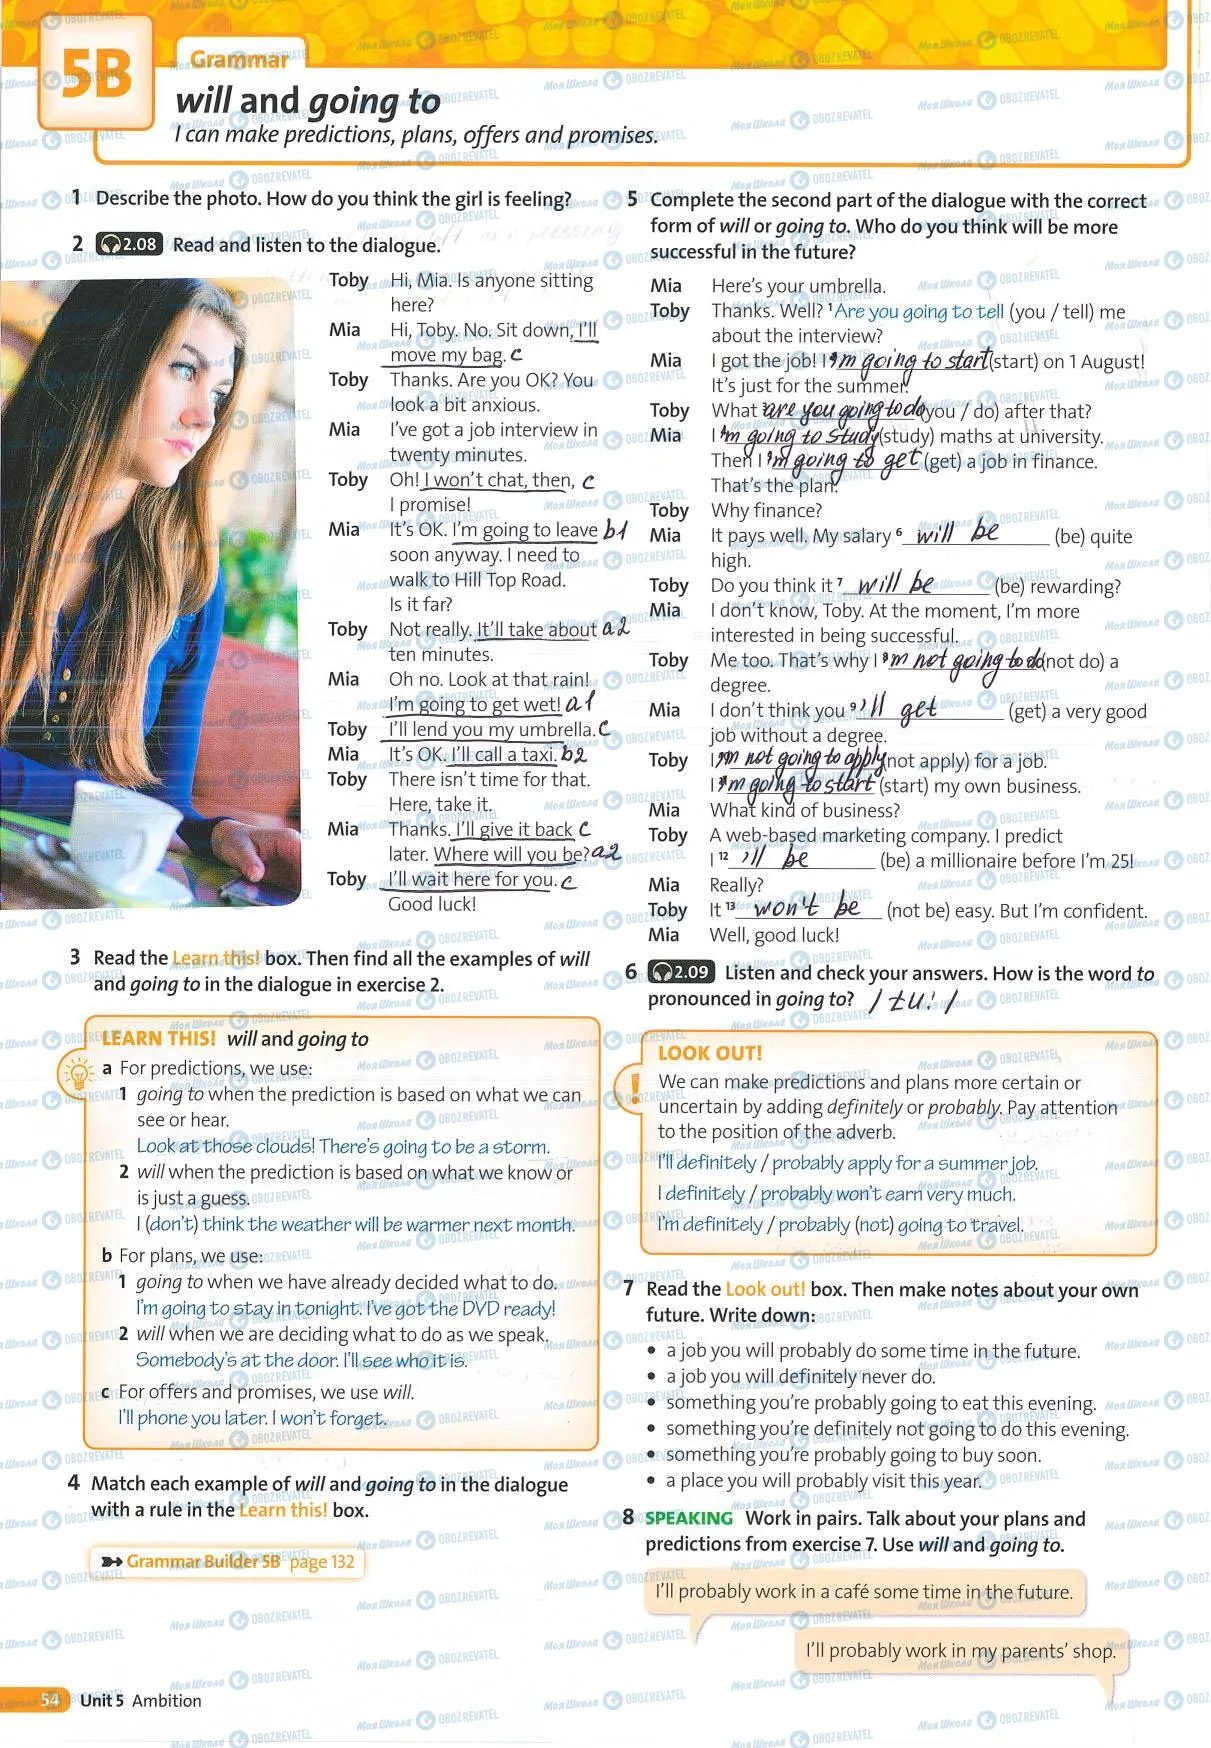 5B
Grammar
will and going to
I can make predictions, plans, offers and promises.
1 Describe the photo. How do you think the girl is feeling?
2 2.08 Read and listen to the dialogue.
Toby Hi, Mia. Is anyone sitting
here?
Mia Hi, Toby. No. Sit down, I'll
move my bag. c
Toby Thanks. Are you OK? You
look a bit anxious.
Mia I've got a job interview in
twenty minutes.
Toby Oh! I won't chat, then, c
I promise!
Mia It's OK. I'm going to leave b1
soon anyway. I need to
walk to Hill Top Road.
Is it far?
Toby Not really. It'll take about a2
ten minutes.
Mia Oh no. Look at that rain!
I'm going to get wet! a1
Toby I'll lend you my umbrella. c
Mia It's OK. I'll call a taxi. b2
Toby There isn't time for that.
Here, take it.
Mia Thanks. I'll give it back c
later. Where will you be? a2
Toby I'll wait here for you. c
Good luck!
3 Read the Learn this! box. Then find all the examples of will
and going to in the dialogue in exercise 2.
LEARN THIS! will and going to
a For predictions, we use:
1 going to when the prediction is based on what we can
see or hear.
Look at those clouds! There's going to be a storm.
2 will when the prediction is based on what we know or
is just a guess.
I (don't) think the weather will be warmer next month.
b For plans, we use:
1 going to when we have already decided what to do.
I'm going to stay in tonight. I've got the DVD ready!
2 will when we are deciding what to do as we speak.
Somebody's at the door. I'll see who it is.
c For offers and promises, we use will.
I'll phone you later. I won't forget.
4 Match each example of will and going to in the dialogue
with a rule in the Learn this! box.
Grammar Builder 5B page 132
54 Unit 5 Ambition
5 Complete the second part of the dialogue with the correct
form of will or going to. Who do you think will be more
successful in the future?
Mia Here's your umbrella.
Toby Thanks. Well? 1 Are you going to tell (you / tell) me
about the interview?
Mia I got the job! I 'm going to start (start) on 1 August!
It's just for the summer.
Toby What are you going to do (you / do) after that?
Mia I 'm going to study (study) maths at university.
Then I 'm going to get (get) a job in finance.
That's the plan.
Toby Why finance?
Mia It pays well. My salary 6 will be (be) quite
high.
Toby Do you think it 7 will be (be) rewarding?
Mia I don't know, Toby. At the moment, I'm more
interested in being successful.
Toby Me too. That's why I 'm not going to do (not do) a
degree.
Mia I don't think you 9 'll get (get) a very good
job without a degree.
Toby I 'm not going to apply (not apply) for a job.
I 'm going to start (start) my own business.
Mia What kind of business?
Toby A web-based marketing company. I predict
I 12 'll be (be) a millionaire before I'm 25!
Mia Really?
Toby It 13 won't be (not be) easy. But I'm confident.
Mia Well, good luck!
6 2.09 Listen and check your answers. How is the word to
pronounced in going to? /tu:/
LOOK OUT!
We can make predictions and plans more certain or
uncertain by adding definitely or probably. Pay attention
to the position of the adverb.
I'll definitely / probably apply for a summer job.
I definitely / probably won't earn very much.
I'm definitely / probably (not) going to travel.
7 Read the Look out! box. Then make notes about your own
future. Write down:
• a job you will probably do some time in the future.
• a job you will definitely never do.
• something you're probably going to eat this evening.
• something you're definitely not going to do this evening.
• something you're probably going to buy soon.
• a place you will probably visit this year.
8 SPEAKING Work in pairs. Talk about your plans and
predictions from exercise 7. Use will and going to.
I'll probably work in a café some time in the future.
I'll probably work in my parents' shop.
Моя Школа OBOZREVATEL